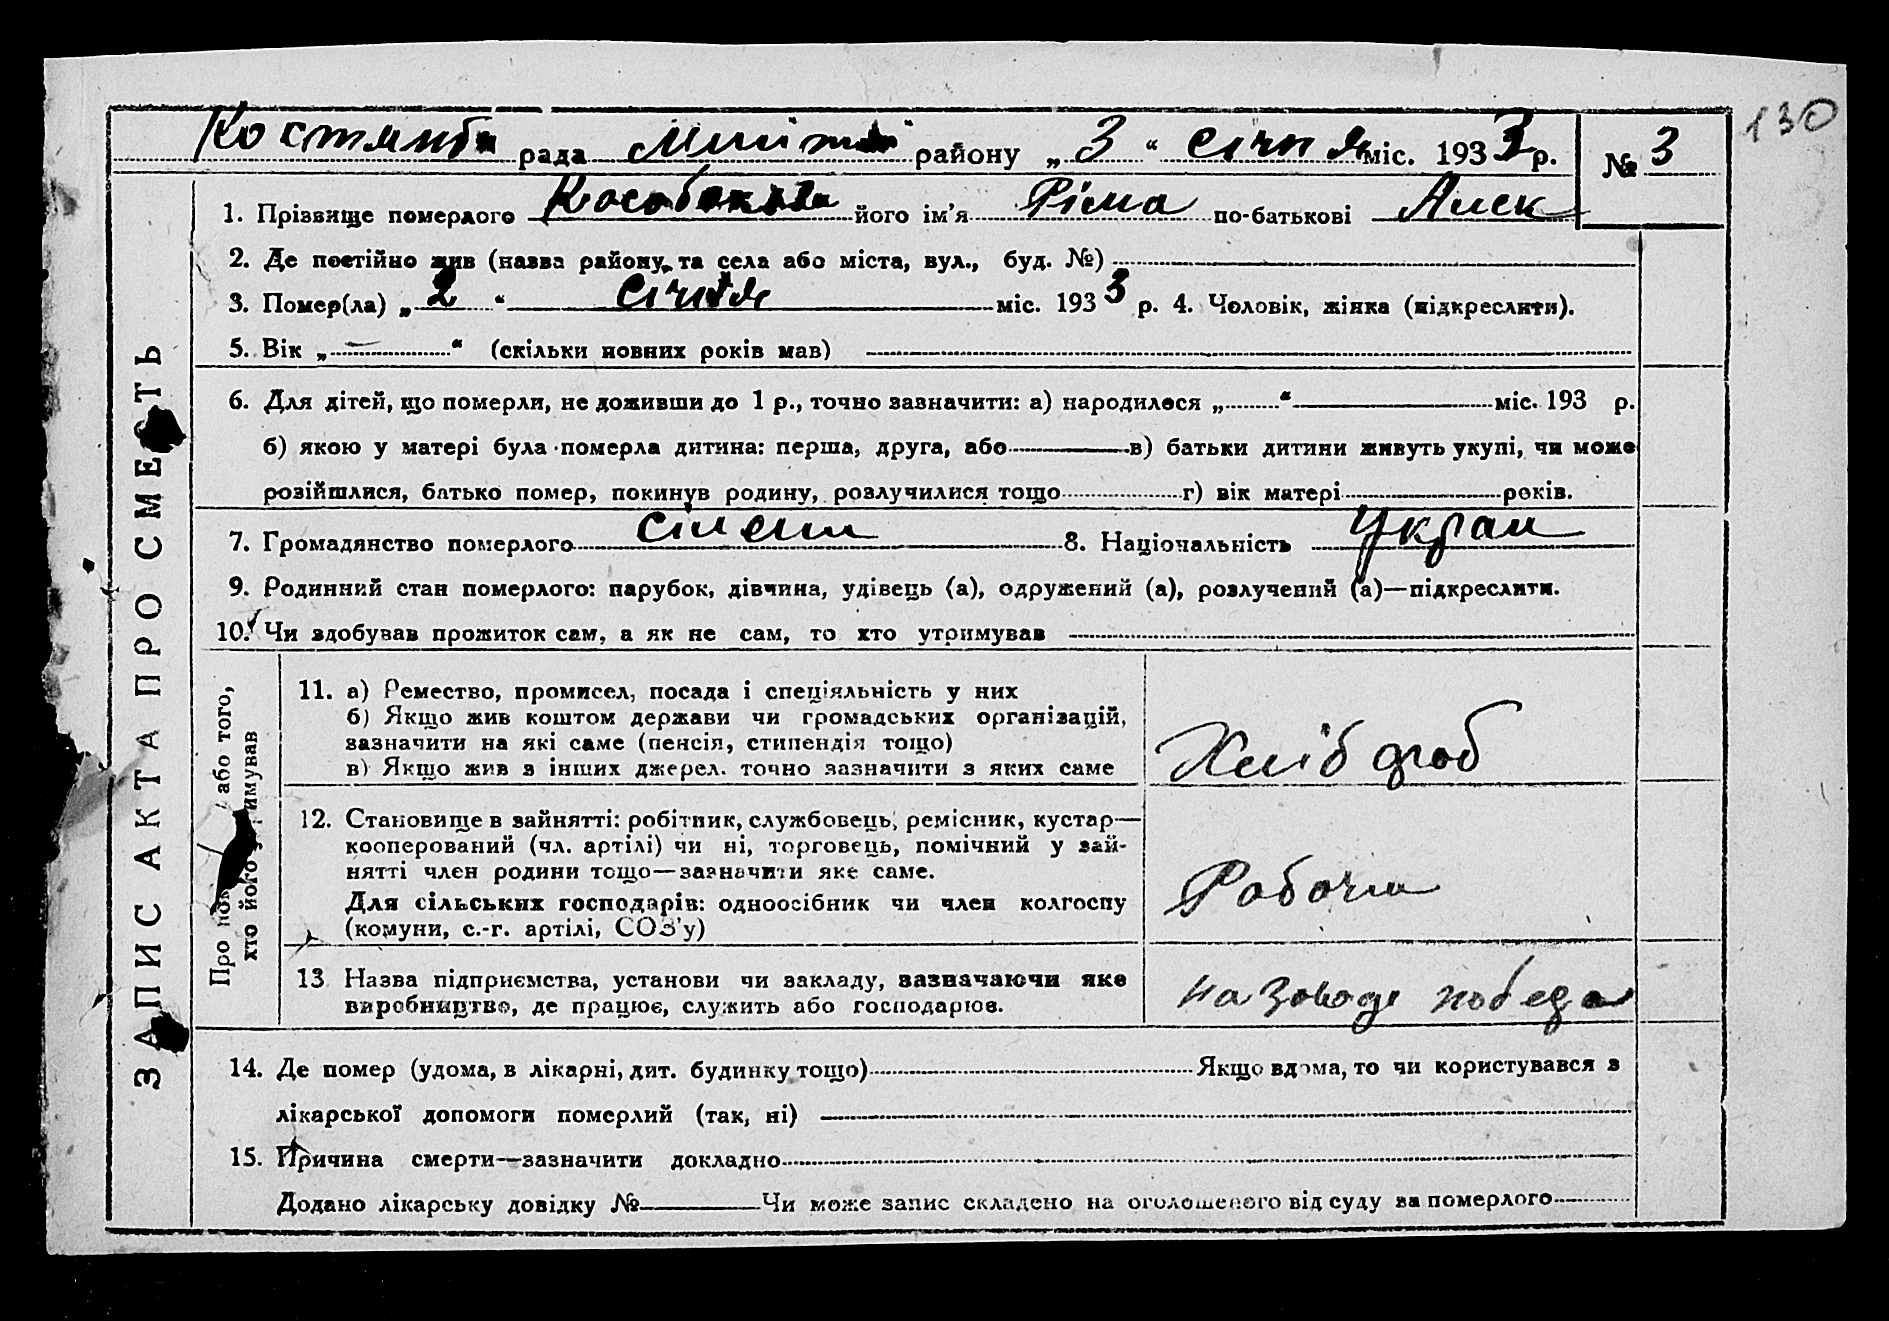 130
рада района „ 3 “ січня міс. 1933 р. № 3
1. Прізвище померлого його ім'я Ріма по-батькові Алек
2. Де постійно жив (назва району, та села або міста, вул., буд. №)
3. Помер(ла) „ 2 “ січня міс. 1933 р. 4. Чоловік, жінка (підкреслити).
5. Вік „ “ (скільки повних років мав)
6. Для дітей, що померли, не доживши до 1 р., точно зазначити: а) народилося „ “ міс. 193 р.
б) якою у матері була померла дитина: перша, друга, або в) батьки дитини живуть укупі, чи може
розійшлися, батько помер, покинув родину, розлучилися тощо г) вік матері років.
7. Громадянство померлого 8. Національність Украин
9. Родинний стан померлого: парубок, дівчина, удівець (а), одружений (а), розлучений (а)—підкреслити.
10. Чи здобував прожиток сам, а як не сам, то хто утримував
11. а) Ремество, промисел, посада і спеціяльність у них
б) Якщо жив коштом держави чи громадських організацій,
зазначити на які саме (пенсія, стипендія тощо)
в) Якщо жив з інших джерел. точно зазначити з яких саме
Хліб роб
12. Становище в зайнятті: робітник, службовець, ремісник, кустар—
кооперований (чл. артілі) чи ні, торговець, помічний у зай-
нятті член родини тощо—зазначити яке саме.
Для сільських господарів: одноосібник чи член колгоспу
(комуни, с.-г. артілі, СОЗ'у)
Рабочи
13 Назва підприємства, установи чи закладу, зазначаючи яке
виробництво, де працює, служить або господарює.
на заводе победа
14. Де помер (удома, в лікарні, дит. будинку тощо) Якщо вдома, то чи користувався з
лікарської допомоги померлий (так, ні)
15. Причина смерти—зазначити докладно
Додано лікарську довідку № Чи може запис складено на оголошеного від суду за померлого
ЗАПИС АКТА ПРО СМЕРТЬ
Про або того,
хто його утримував